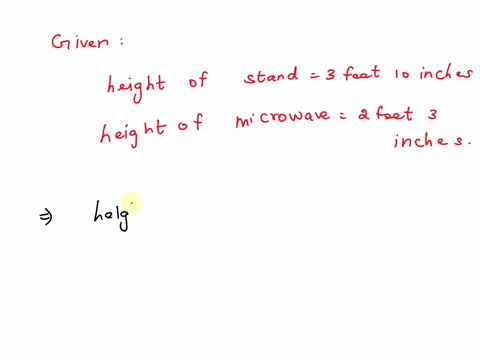 Given :
height of stand = 3 feet 10 inches
height of microwave = 2 feet 3
inches.
⇒ heig